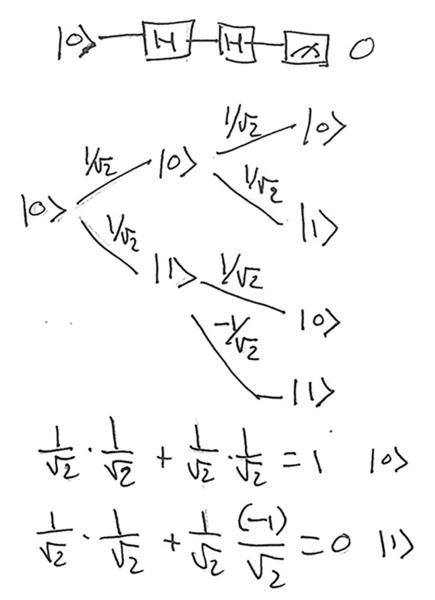 |0> H H 0
1/√2 |0>
1/√2 |0> 1/√2
|0> |1>
1/√2
|1> 1/√2
-1/√2 |0>
|1>
1/√2 · 1/√2 + 1/√2 · 1/√2 = 1 |0>
1/√2 · 1/√2 + 1/√2 (-1)/√2 = 0 |1>